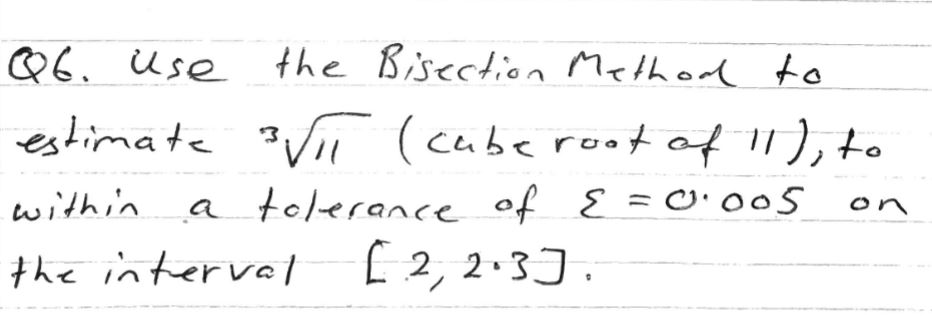 Q6. Use the Bisection Method to
estimate ³√11 (cube root of 11), to
within a tolerance of ε = 0.005 on
the interval [2, 2.3].